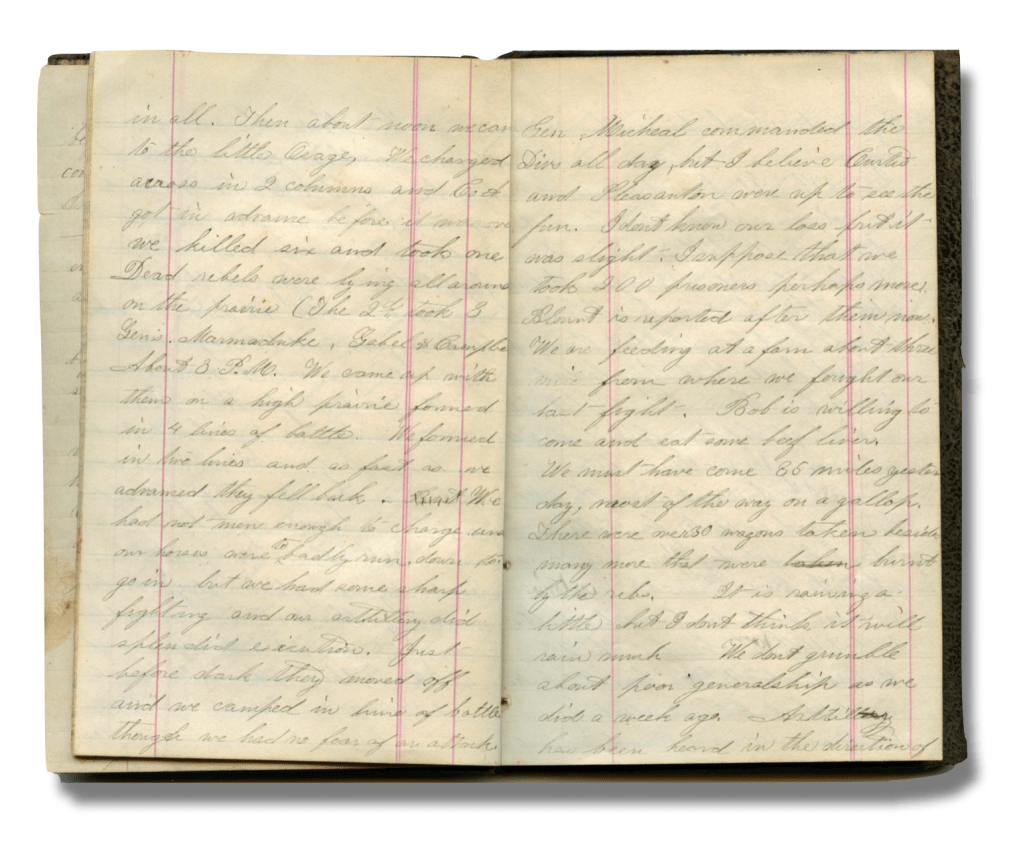 in all. Then about noon we cam
to the little Osage, We charged
across in 2 columns and Co. A
got in advance before it was ove
we killed six and took one
Dead rebels were lying all aroun
on the prairie (The 2d took 3
Gen's. Marmaduke, Gabel &
About 3 P.M. We came up with
them on a high prairie formed
in 4 lines of battle. We formed
in two lines and as fast as we
advanced they fell back. We
had not men enough to charge and
our horses were to badly run down to
go in but we had some sharp
fighting and our artillery did
splendid execution. Just
before dark they moved off
and we camped in line of battle
though we had no fear of an attack
Gen Micheal commanded the
Div all day, but I believe Curtis
and Pleasanton were up to see the
fun. I dont know our loss but it
was slight. I suppose that we
took 200 prisoners perhaps more.
Blount is reported after them now.
We are feeding at a farm about three
mile from where we fought our
last fight. Bob is willing to
come and eat some beef liver.
We must have come 35 miles yester
day, most of the way on a gallop.
There were over 30 wagons taken beside
many more that were taken burnt
by the rebs. It is raining a
little but I dont think it will
rain much We dont grumble
about poor generalship as we
did a week ago. Artillery
has been heard in the direction of